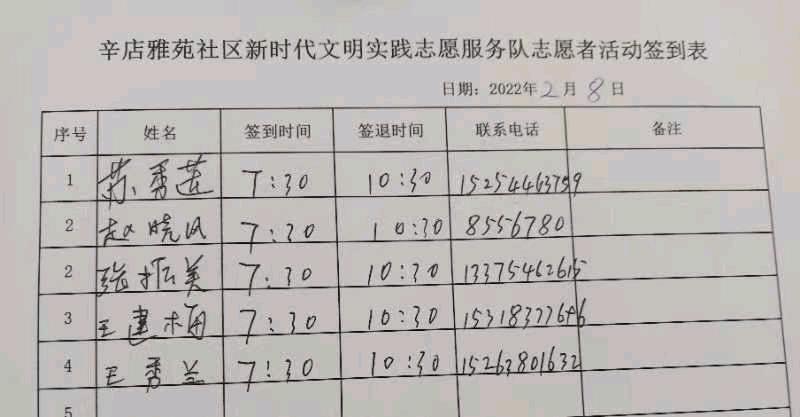 辛店雅苑社区新时代文明实践志愿服务队志愿者活动签到表
日期：2022年2月8日
序号 姓名 签到时间 签退时间 联系电话 备注
1 苏秀莲 7:30 10:30 15254463759
2 赵晓风 7:30 10:30 8556780
2 张振美 7:30 10:30 13375462615
3 王建梅 7:30 10:30
4 王秀兰 7:30 10:30 15263801632
5